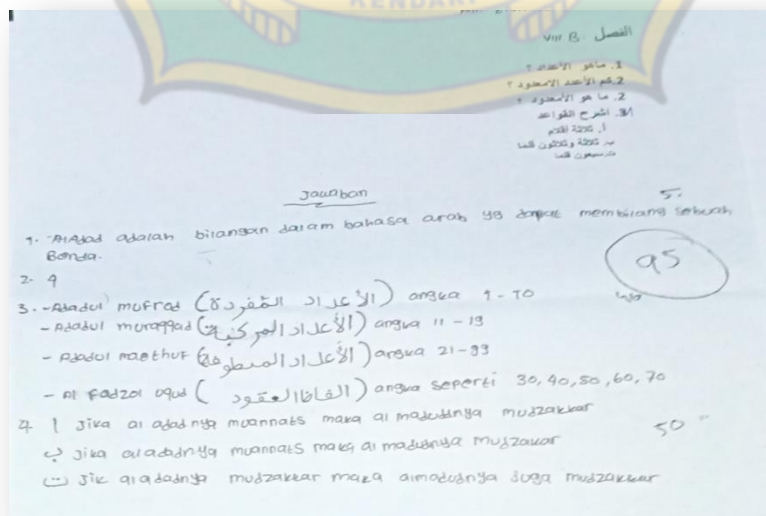 KENDARI
الفصل : VIII B
1. ماهو الأعداد ؟
2. كم الأعدد الأمعدود ؟
2. ما هو الأمعدود ؟
3. اشرح القواعد
أ. ثلاثة اقلام
ب. ثلاثة وثلاثون قلما
ت. سبعون قلما
Jawaban
5.
1. Al Adad adalah bilangan dalam bahasa arab yg dapat membilang sebuah
Benda.
95
2. 4
3. - Adadul mufrad (الأعداد المفردة) angka 1 - 10
- Adadul muraqqad (الأعداد المركبة) angka 11 - 19
- Adadul maethuf (الأعداد المعطوفة) angka 21 - 99
- Al fadzol uqud (الفاظ العقود) angka seperti 30, 40, 50, 60, 70
4. أ Jika al adadnya muannats maka al madudnya mudzakkar
50
ب Jika al adadnya muannats maka al madudnya mudzakar
ت Jik al adadnya mudzakkar maka almadudnya juga mudzakkar